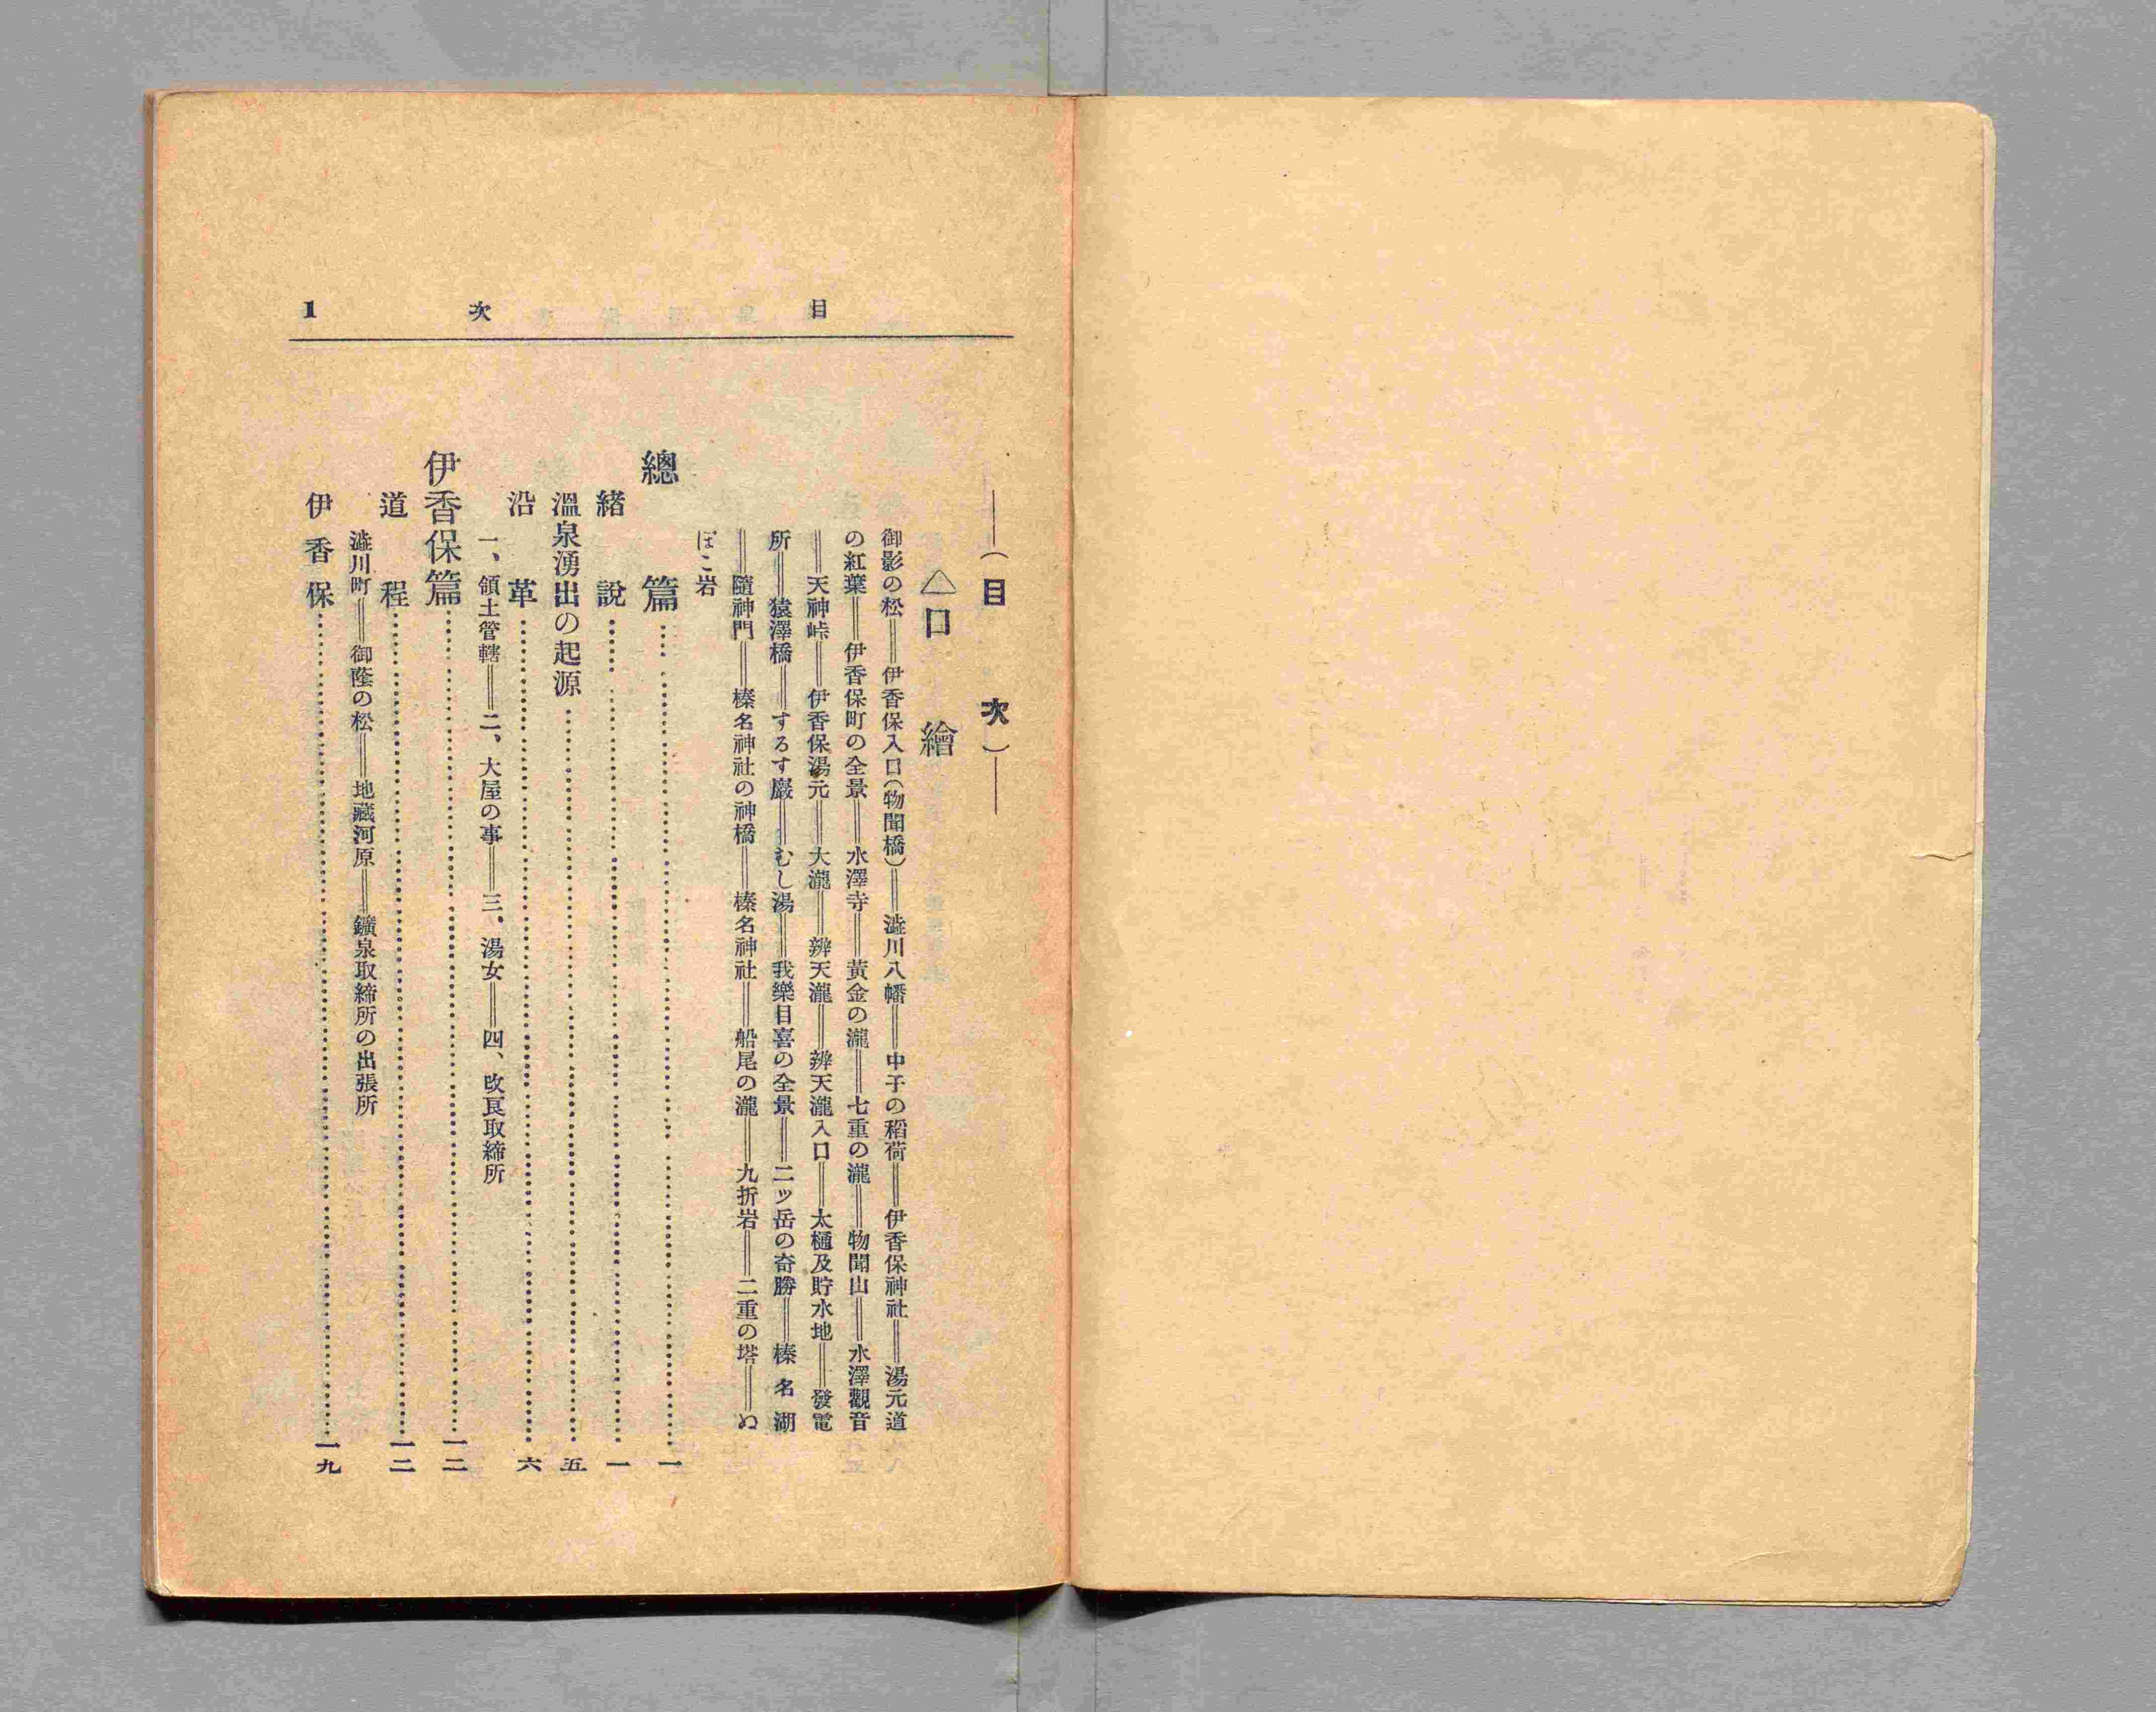 目次 1
——（目次）——
△口繪
御影の松＝伊香保入口（物聞橋）＝澁川八幡＝中子の稻荷＝伊香保神社＝湯元道
の紅葉＝伊香保町の全景＝水澤寺＝黃金の瀧＝七重の瀧＝物聞山＝水澤觀音
＝天神峠＝伊香保湯元＝大瀧＝辨天瀧＝辨天瀧入口＝太樋及貯水地＝發電
所＝猿澤橋＝するす巖＝むし湯＝我樂目喜の全景＝二ッ岳の奇勝＝榛名湖
＝隨神門＝榛名神社の神橋＝榛名神社＝船尾の瀧＝九折岩＝二重の塔＝ぬ
ぼこ岩
總篇……一
緖說……一
溫泉湧出の起源……五
沿革……六
一、領土管轄＝二、大屋の事＝三、湯女＝四、改良取締所
伊香保篇……一二
道程……一二
澁川町＝御蔭の松＝地藏河原＝鑛泉取締所の出張所
伊香保……一九